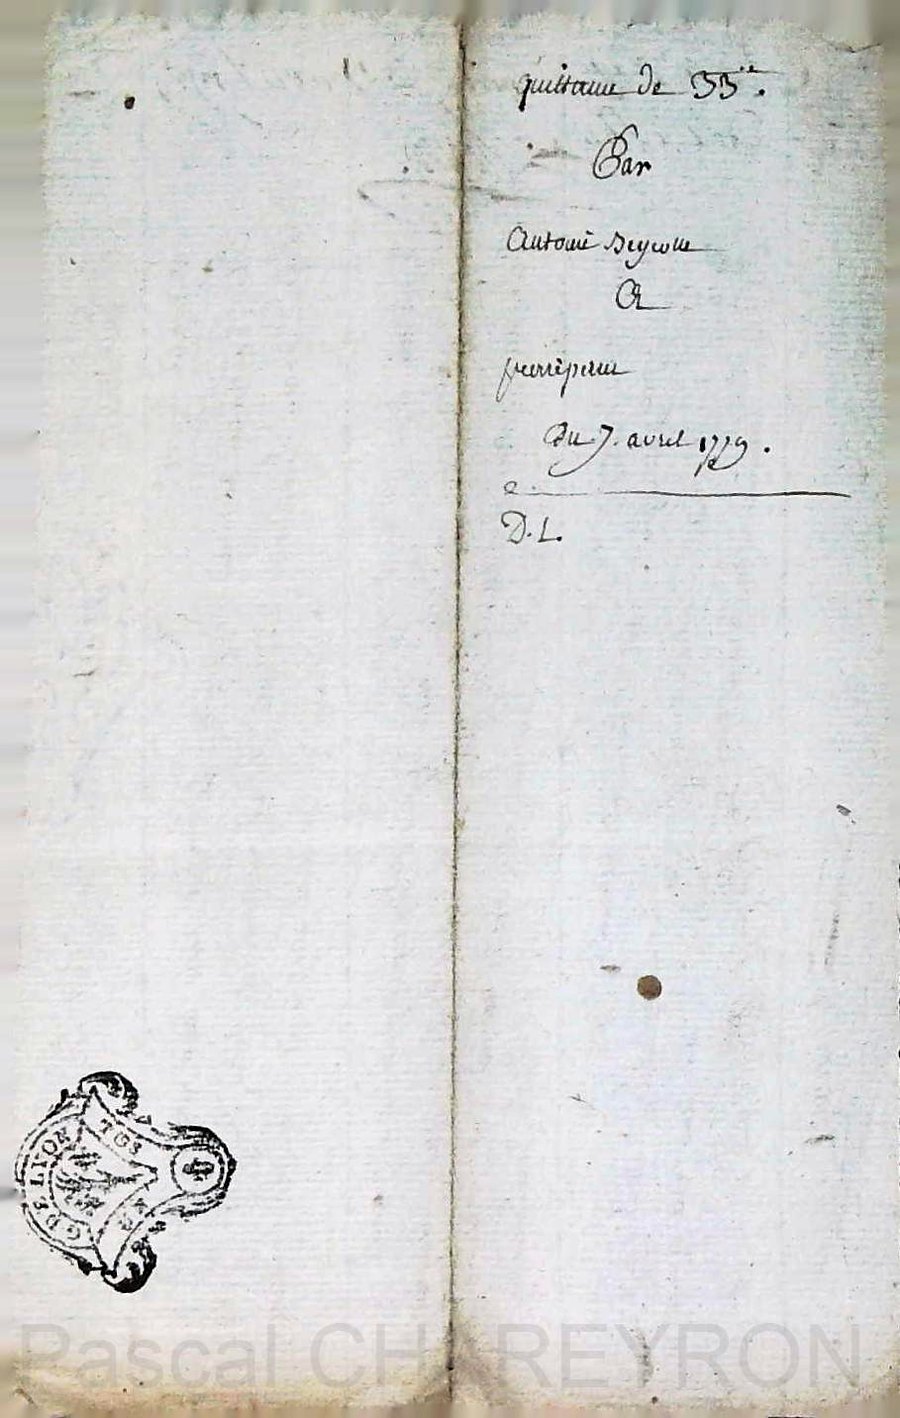 quittance de 33ᵗᵗ.
Par
Antoine
A
pierre
Du 7. avril 1779.
D. L.
GNE LYON
Pascal CHAREYRON